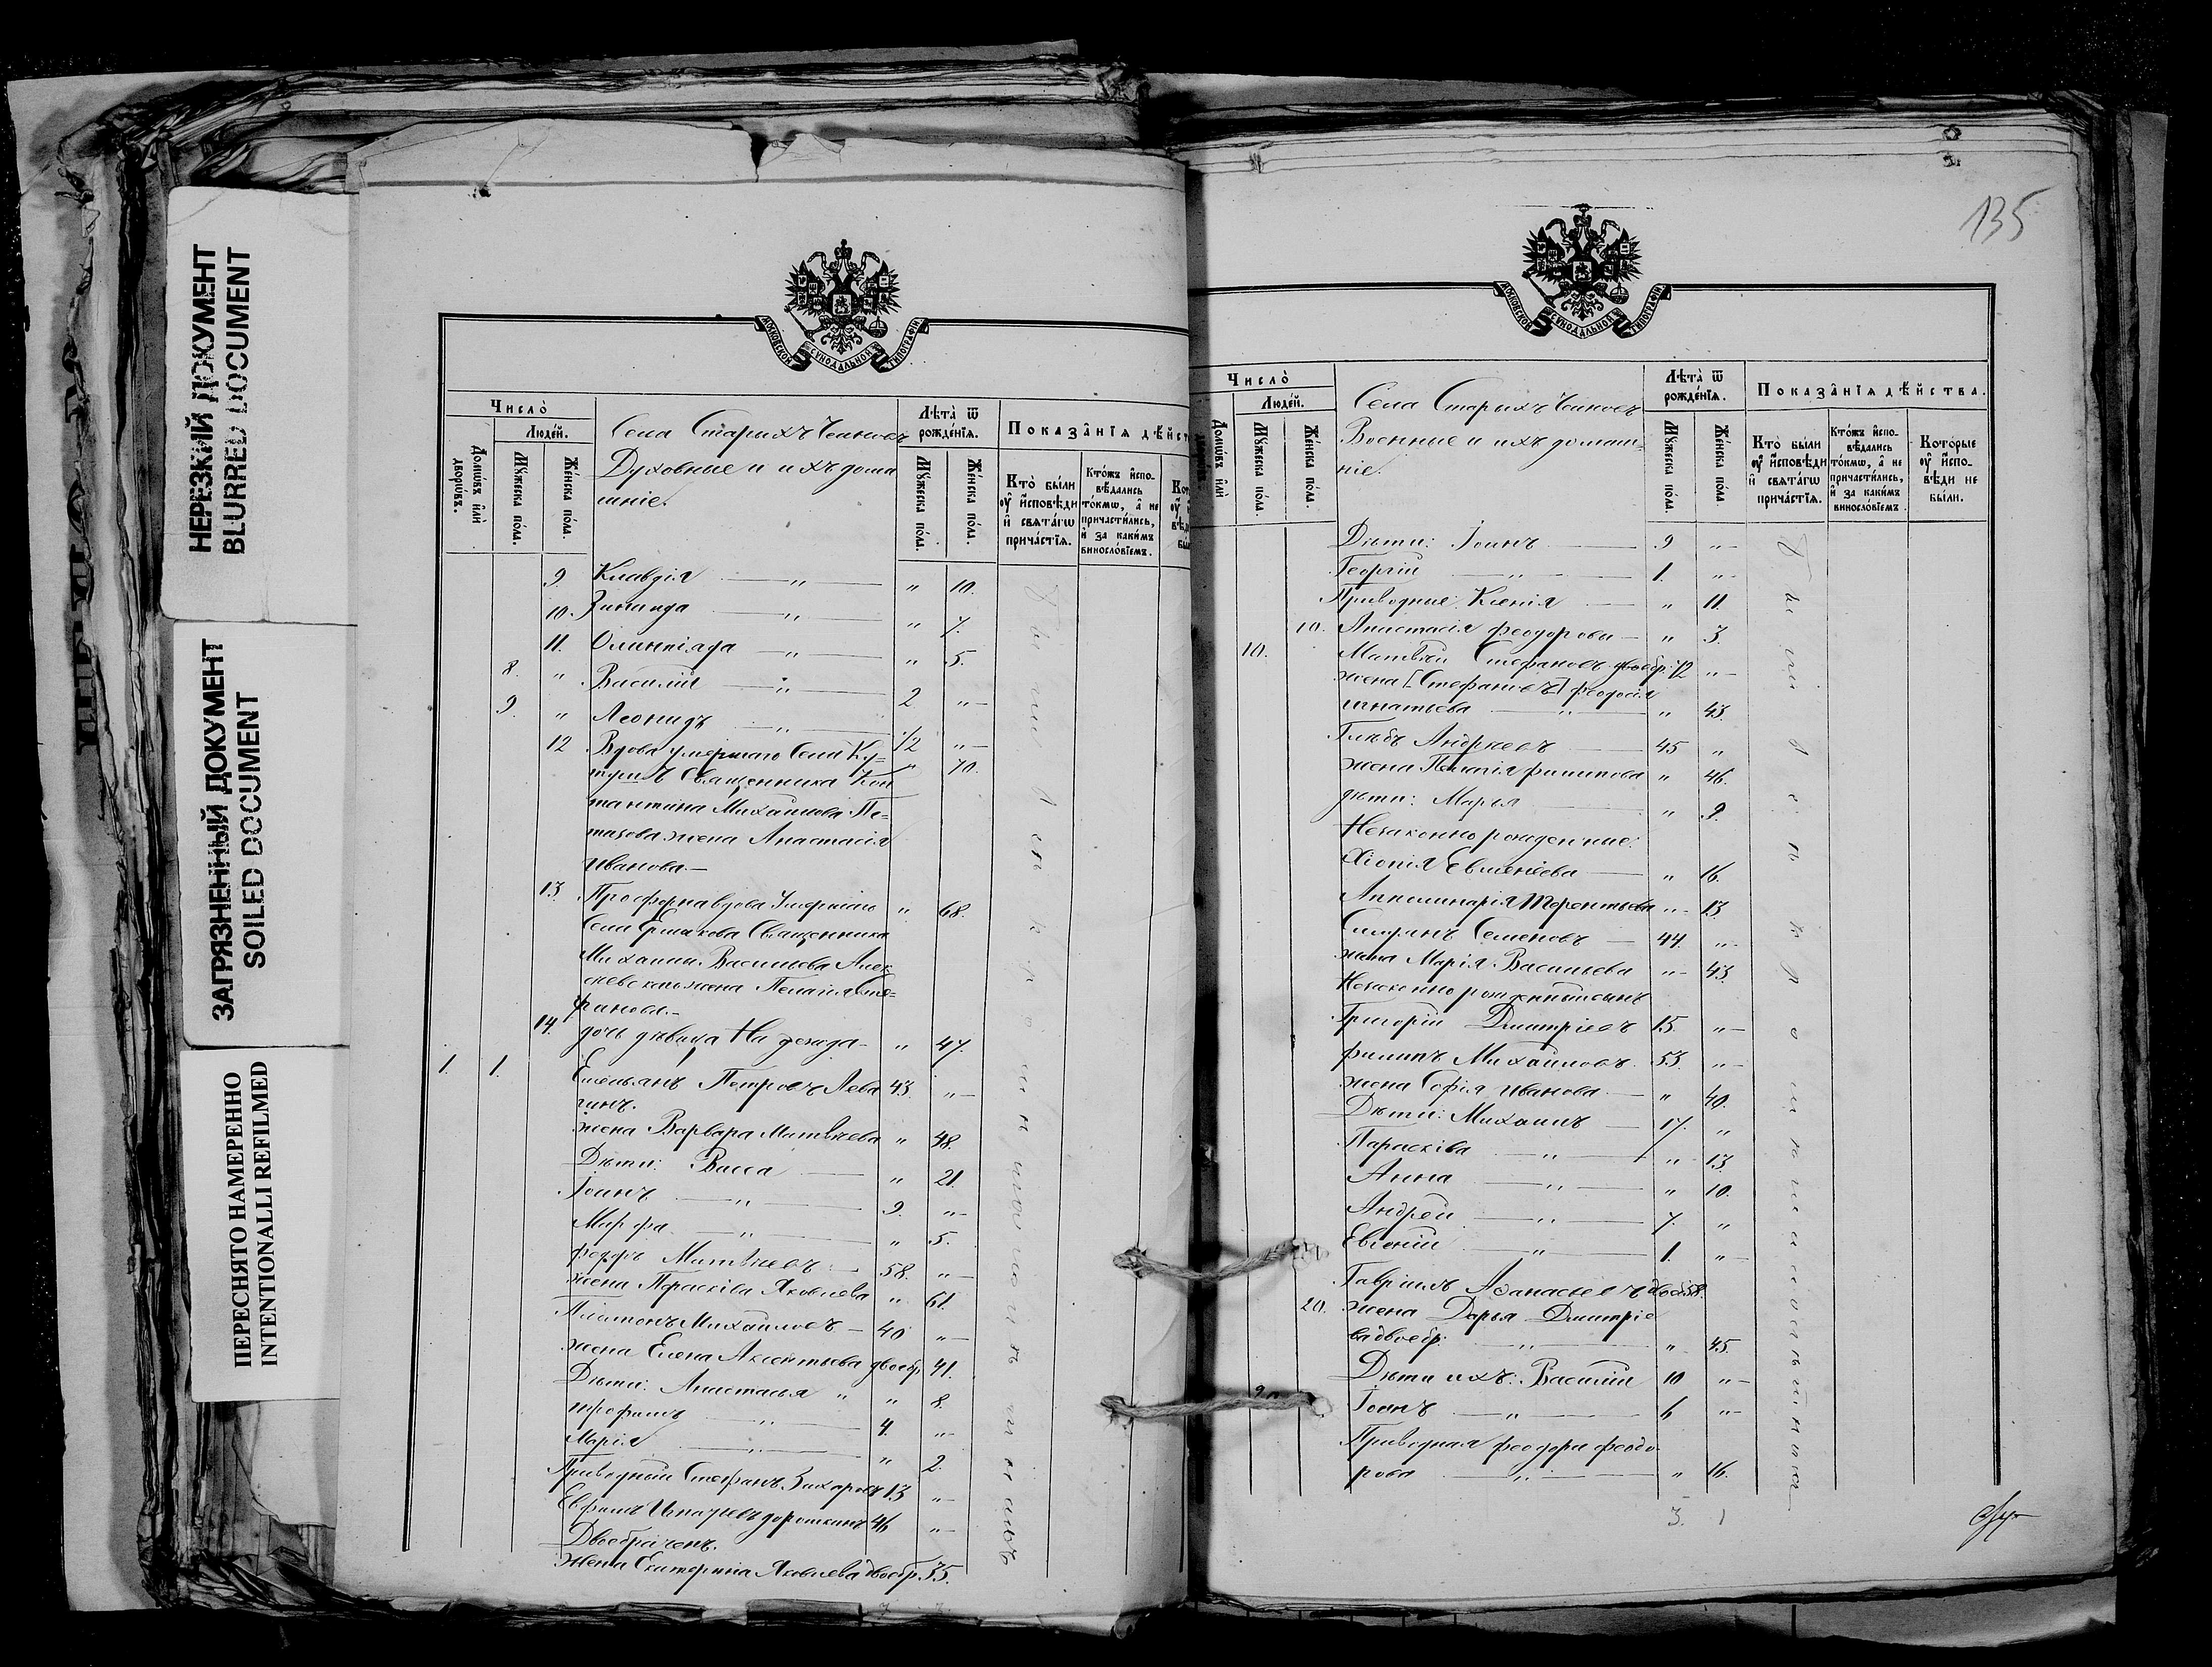 НЕРЕЗКИЙ ДОКУМЕНТ
BLURRED DOCUMENT
ЗАГРЯЗНЕННЫЙ ДОКУМЕНТ
SOILED DOCUMENT
ПЕРЕСНЯТО НАМЕРЕННО
INTENTIONALLI REFILMED
МОСКОВСКОЙ СѴНОДАЛЬНОЙ ТИПОГРАФІИ
Число̀
Люде́й.
Домѡ́въ и҆лѝ дворѡ́въ.
Мꙋ́жеска по́ла.
Же́нска по́ла.
Села Старыхъ
Духовные и ихъ дома
шніе.
Лѣта̀ ѿ рожде́нїѧ.
Мꙋ́жеска по́ла.
Же́нска по́ла.
Показа̂нїѧ дѣ́йст
Кто̀ были ᲂу҆ и҆сповѣди и҆ свѧта́гѡ прича́стїѧ.
Кто́жъ и҆спо-вѣдались то́кмѡ, а҆ не причасти́лись, и҆ за каки́мъ винословїемъ.
9. Клавдія — „ — „ 10.
10. Зинаида — „ — „ 7.
11. Олимпіада — „ — „ 5.
8. „ Василій — „ — 2 „
9. „ Леонидъ — „ — 1/2 „
12 Вдова умершаго Села Ку= „ 70.
Священника Кон
тантина Михаилова Пе=
жена Анастасія
Иванова.—
13. Просфорня вдова Умершаго „ 68.
Села Ермакова Священника
Михаила Васильева Алек
жена Пелагія
14. дочь дѣвица Надежда — „ 47.
1. 1. Емельянъ Петровъ Лева 43. „
гинъ.
жена Варвара Матвѣева „ 48.
Дѣти: Васса — „ 21.
Іоанъ — „ — 9. „
Марфа — „ — „ 5.
Федоръ Матвѣевъ — 58. „
жена Параскѣва Яковлева „ 61.
Платонъ Михайловъ — 40 „
жена Елена Аксентьева двоебр 41.
Дѣти: Анастасья „ „ 8.
Трофимъ — „ — 4. „
Марія — „ — „ 2.
Приводный Стефанъ Захаровъ 13 „
Ефимъ Игнатьевъ Дорошкинъ 46 „
Двоебраченъ.
Жена Екатерина Яковлева двоебр. 35.
135
МОСКОВСКОЙ СѴНОДАЛЬНОЙ ТИПОГРАФІИ
Число̀
Люде́й.
Домѡ́въ и҆лѝ
Мꙋ́жеска по́ла.
Же́нска по́ла.
Села Старыхъ
Военные и ихъ домаш=
ніе.
Лѣта̀ ѿ рожде́нїѧ.
Мꙋ́жеска по́ла.
Же́нска по́ла.
Показа̂нїѧ дѣ́йства.
Кто̀ были ᲂу҆ и҆сповѣди и҆ свѧта́гѡ прича́стїѧ.
Кто́жъ и҆спо-вѣдались то́кмѡ, а҆ не причасти́лись, и҆ за каки́мъ винословїемъ.
Которые ᲂу҆ и҆спо-вѣди не были.
Дѣти: Іоанъ — 9 „
Георгій — „ — 1. „
Приводные: Ксенія — „ 11.
10. Анастасія Феодорова — „ 3.
10. Матвѣй Стефановъ двоебр. 72 „
жена [Стефановъ] Феодосія
Игнатьева — „ — „ 43.
Глѣбъ Андреевъ — 45 „
жена Пелагія Филипова „ 46.
дѣти: Марья — „ 9.
Незаконнорожденные:
Хіонія Евменіева — „ 16.
Апполинарія Терентьева „ 13.
Симеонъ Семеновъ — 44. „
жена Марія Васильева „ 43.
Незаконнорожденный сынъ
Григорій Дмитріевъ 15. „
Филипъ Михайловъ 53. „
жена Софія Иванова — „ 40.
Дѣти: Михаилъ — 17. „
Параскѣва — „ — „ 13.
Анна — „ — „ 10.
Андрей — „ — 7. „
Евгеній — „ — 1. „
Гавріилъ Афанасьевъ двоеб 58.
20. жена Дарья Дмитріе
ва двоебр. — „ — „ 45.
Дѣти ихъ: Василій 10 „
Іоанъ — „ — 6 „
Приводная Феодора Феодо
рова — „ — „ 16.
3. 1